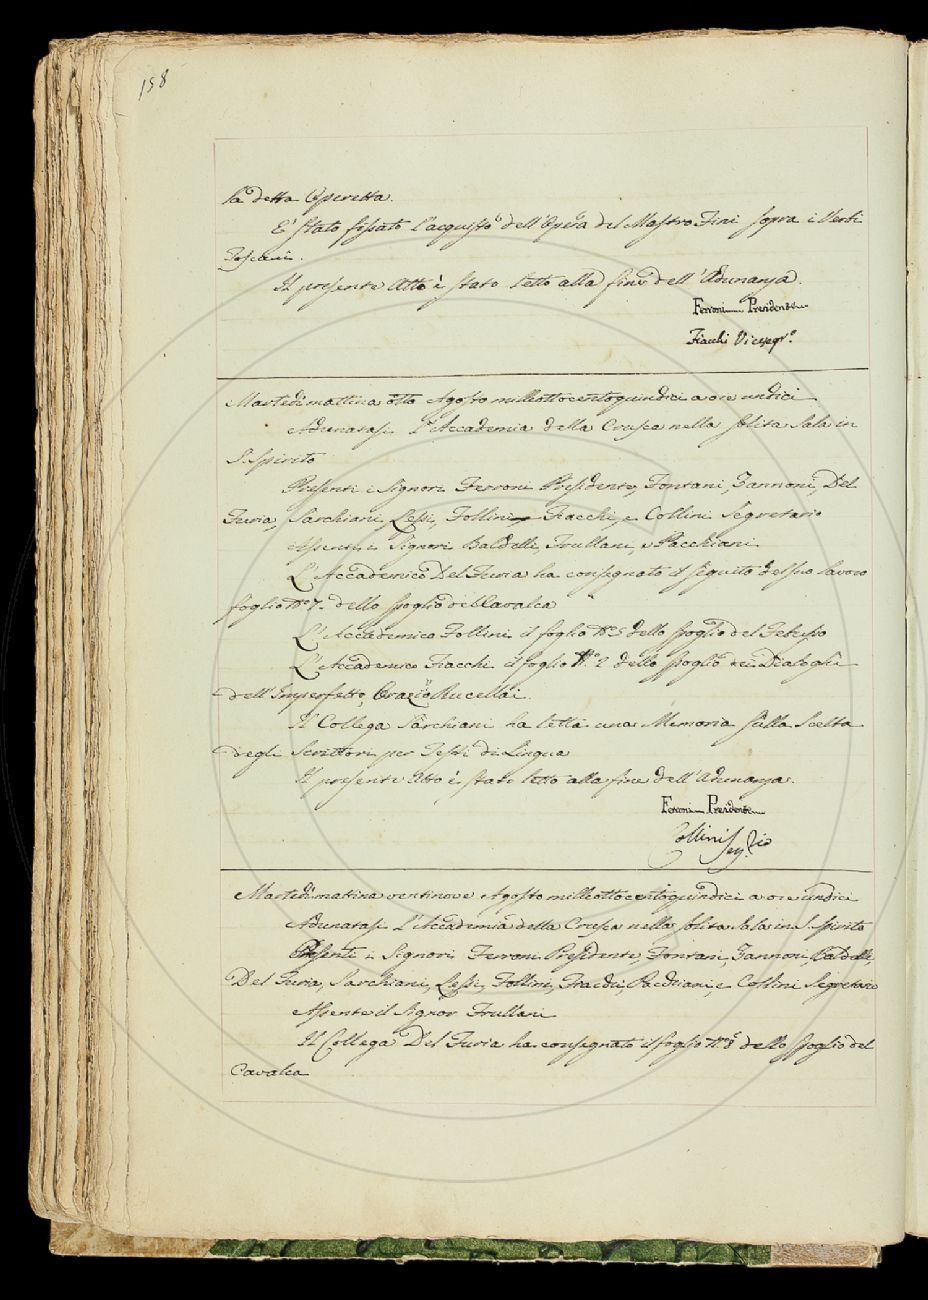 158
la detta Operetta.
E' stato fissato l'acquisto dell'Opera del Mastro Fini sopra i Verbi
Toscani.
Il presente Atto è stato letto alla fine dell'Adunanza.
Ferroni Presidente
Fiacchi Vicesegr.º
Martedì mattina otto Agosto milleottocentoquindici a ore undici
Adunatasi l'Accademia della Crusca nella solita Sala in
S. Spirito
Presenti i Signori Ferroni Presidente, Fontani, Zannoni, Del
Furia, Sarchiani, Lessi, Follini, Fiacchi, e Collini Segretario
Assenti i Signori Baldelli, Frullani, e Pacchiani
L'Accademico Del Furia ha consegnato il seguito del suo lavoro
foglio Nº 7. dello spoglio del Cavalca
L'Accademico Follini il foglio Nº 5 dello spoglio del
L'Accademico Fiacchi il foglio Nº 2 dello spoglio dei Dialoghi
dell'Imperfetto, Orazio Rucellai.
Il Collega Sarchiani ha letta una Memoria sulla Scelta
degli Scrittori per Testi di Lingua
Il presente Atto è stato letto alla fine dell'Adunanza.
Ferroni Presidente
Collini Seg.rio
Martedì matina ventinove Agosto milleottocentoquindici a ore undici
Adunatasi l'Accademia della Crusca nella solita Sala in S. Spirito
Presenti i Signori Ferroni Presidente, Fontani, Zannoni, Baldelli,
Del Furia, Sarchiani, Lessi, Follini, Fiacchi, Pacchiani, e Collini Segretario
Assente il Signor Frullani
Il Collega Del Furia ha consegnato il foglio Nº 8 dello spoglio del
Cavalca